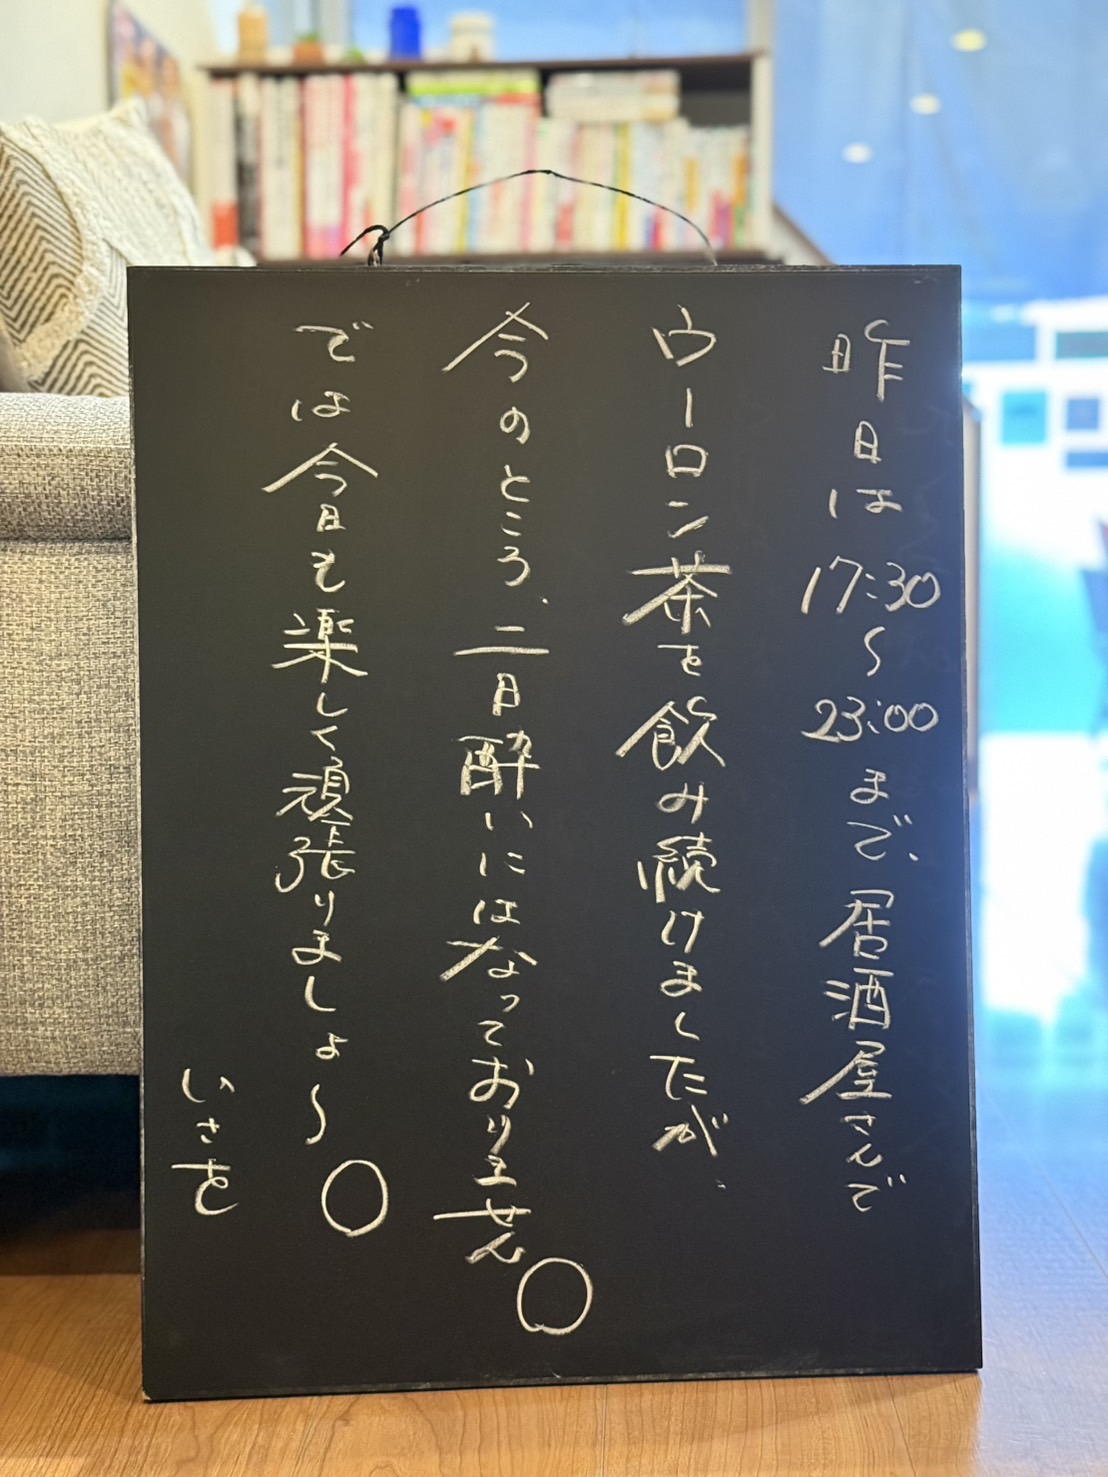 昨日は17:30〜23:00まで、居酒屋さんで
ウーロン茶を飲み続けましたが、
今のところ、二日酔いにはなっておりません。
では今日も楽しく頑張りましょ〜。
いさを